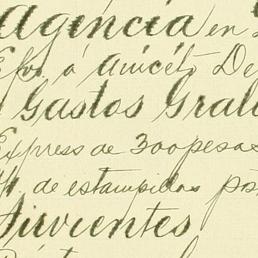 Agencia en
á Aniceto De
Gastos Gral
Express de 300 pesos
de estampidas pos
Sirvientes